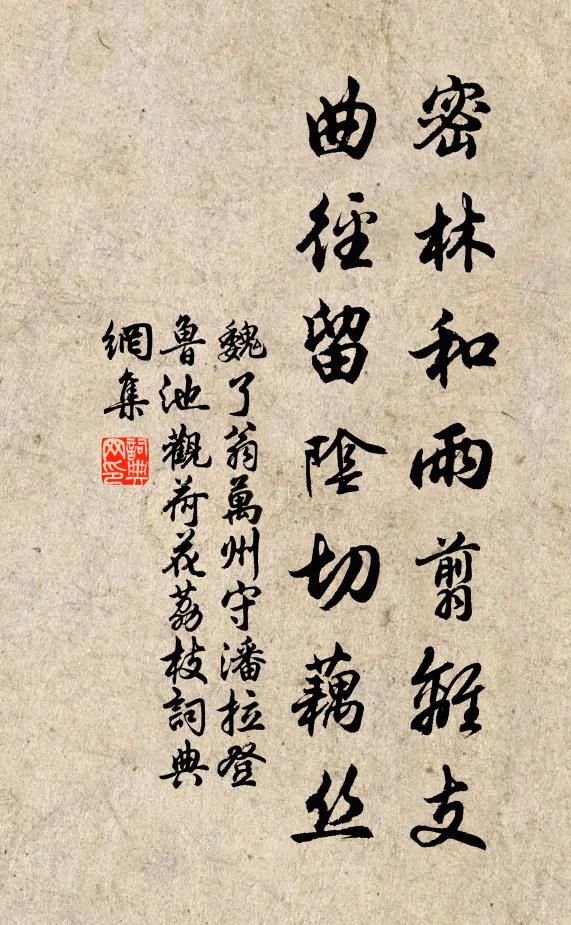 密林和雨翦離支
曲徑留陰切藕丝
魏了翁萬州守潘拉登
魯池觀荷花荔枝詞典
網集
詞典
网印